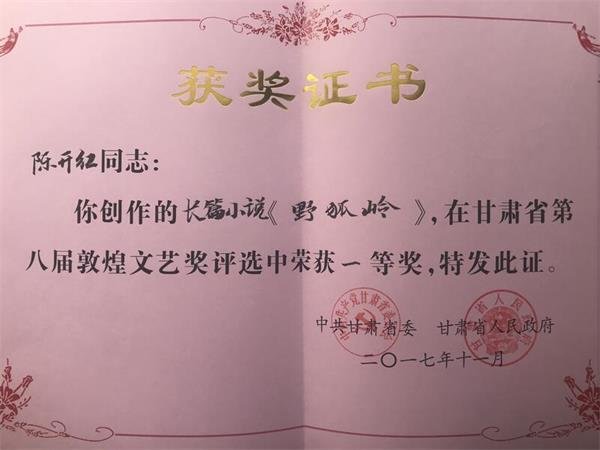 获奖证书
陈开红同志：
你创作的长篇小说《野狐岭》，在甘肃省第
八届敦煌文艺奖评选中荣获一等奖，特发此证。
中共甘肃省委 甘肃省人民政府
二〇一七年十一月